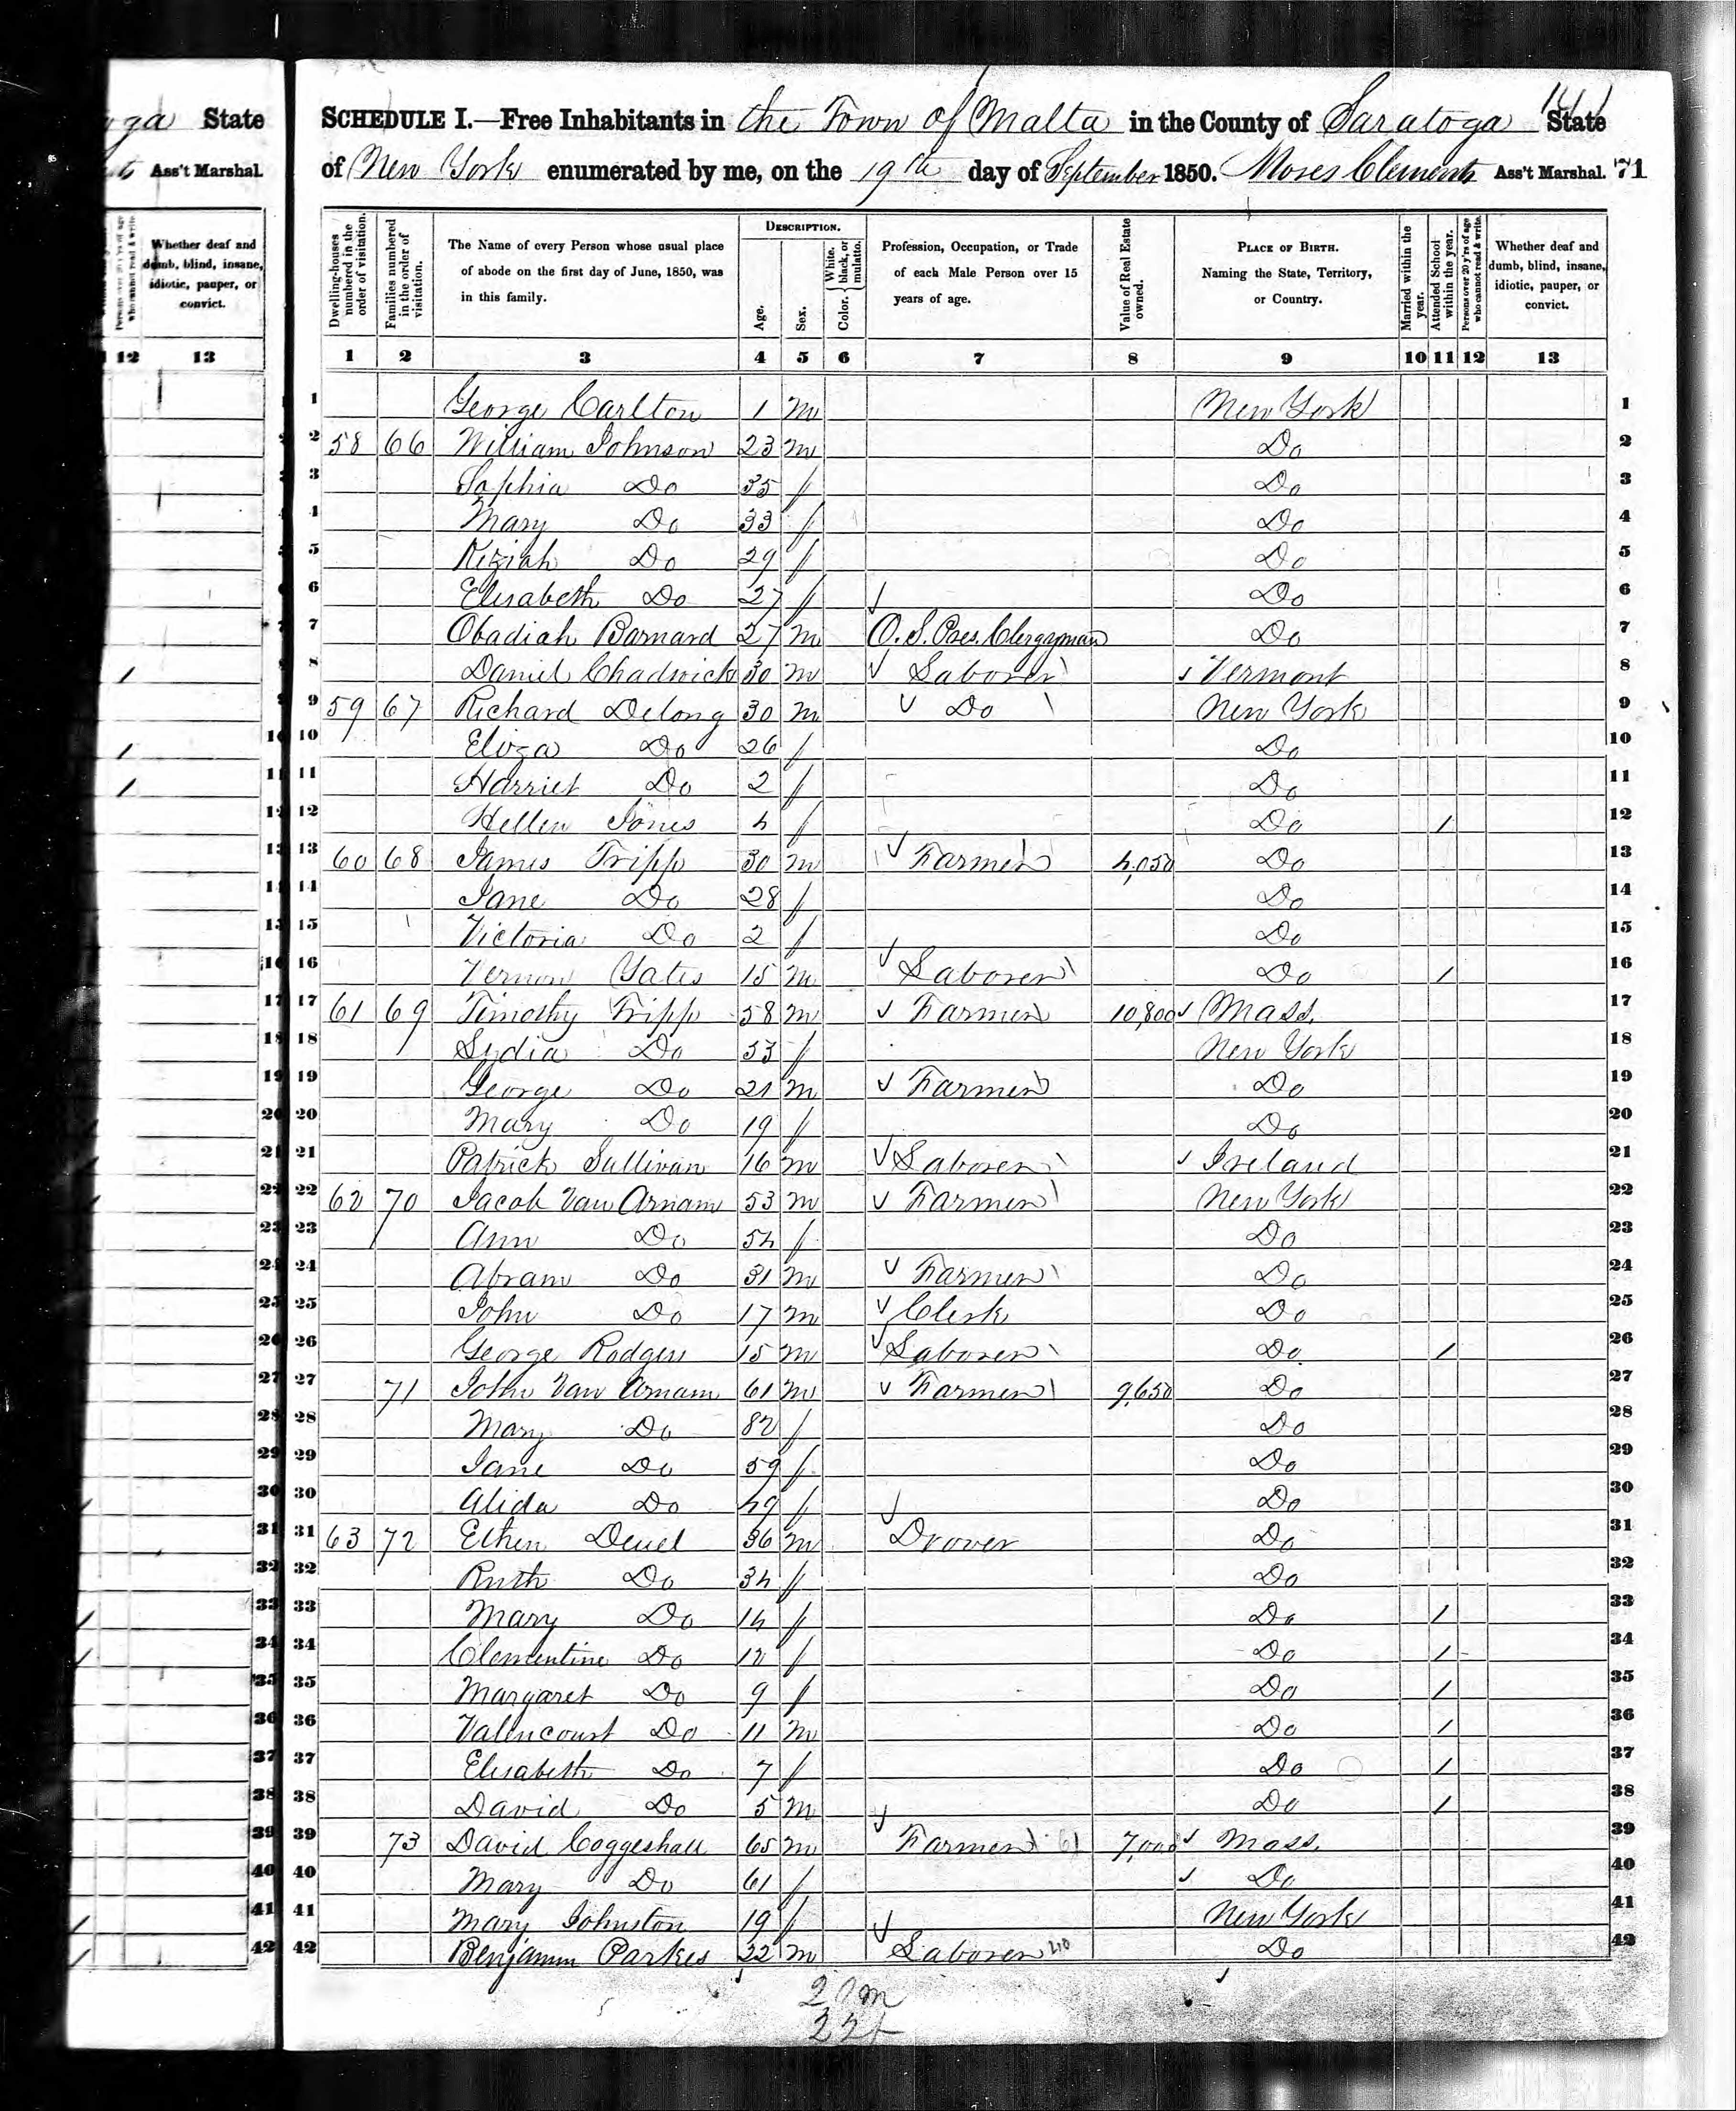 oga State
Ass't Marshal.
Whether deaf and
dumb, blind, insane,
idiotic, pauper, or
convict.
12 13
1411
SCHEDULE I.—Free Inhabitants in the Town of Malta in the County of Saratoga State
of New York enumerated by me, on the 19th day of September 1850. Moses Clements Ass't Marshal. 71
Dwelling-houses numbered in the order of visitation.
Families numbered in the order of visitation.
The Name of every Person whose usual place of abode on the first day of June, 1850, was in this family.
DESCRIPTION.
Age.
Sex.
Color. White, black, or mulatto.
Profession, Occupation, or Trade of each Male Person over 15 years of age.
Value of Real Estate owned.
PLACE OF BIRTH. Naming the State, Territory, or Country.
Married within the year.
Attended School within the year.
Persons over 20 y'rs of age who cannot read & write.
Whether deaf and dumb, blind, insane, idiotic, pauper, or convict.
1 2 3 4 5 6 7 8 9 10 11 12 13
1 George Carlton 1 m New York 1
2 58 66 William Johnson 23 m Do 2
3 Sophia Do 35 f Do 3
4 Mary Do 33 f Do 4
5 Kiziah Do 29 f Do 5
6 Elisabeth Do 27 f Do 6
7 Obadiah Barnard 27 m O. S. Pres. Clergyman Do 7
8 Daniel Chadwick 30 m Laborer Vermont 8
9 59 67 Richard Delong 30 m Do New York 9
10 Eliza Do 26 f Do 10
11 Harriet Do 2 f Do 11
12 Hellen Jones 4 f Do / 12
13 60 68 James Tripp 30 m Farmer 4,050 Do 13
14 Jane Do 28 f Do 14
15 Victoria Do 2 f Do 15
16 Vernon Yates 15 m Laborer Do / 16
17 61 69 Timothy Tripp 58 m Farmer 10,800 Mass. 17
18 Lydia Do 53 f New York 18
19 George Do 21 m Farmer Do 19
20 Mary Do 19 f Do 20
21 Patrick Sullivan 16 m Laborer Ireland 21
22 62 70 Jacob Van Arnam 53 m Farmer New York 22
23 Ann Do 54 f Do 23
24 Abram Do 31 m Farmer Do 24
25 John Do 17 m Clerk Do 25
26 George Rodgers 15 m Laborer Do / 26
27 71 John Van Arnam 61 m Farmer 9,650 Do 27
28 Mary Do 82 f Do 28
29 Jane Do 59 f Do 29
30 Alida Do 49 f Do 30
31 63 72 Ethen Deuel 36 m Drover Do 31
32 Ruth Do 34 f Do 32
33 Mary Do 14 f Do / 33
34 Clementine Do 12 f Do / 34
35 Margaret Do 9 f Do / 35
36 Valincourt Do 11 m Do / 36
37 Elisabeth Do 7 f Do / 37
38 David Do 5 m Do / 38
39 73 David Coggeshall 65 m Farmer 61 7,000 Mass. 39
40 Mary Do 61 f Do 40
41 Mary Johnston 19 f New York 41
42 Benjamin Parkes 22 m Laborer 210 Do 42
20 m
22 f